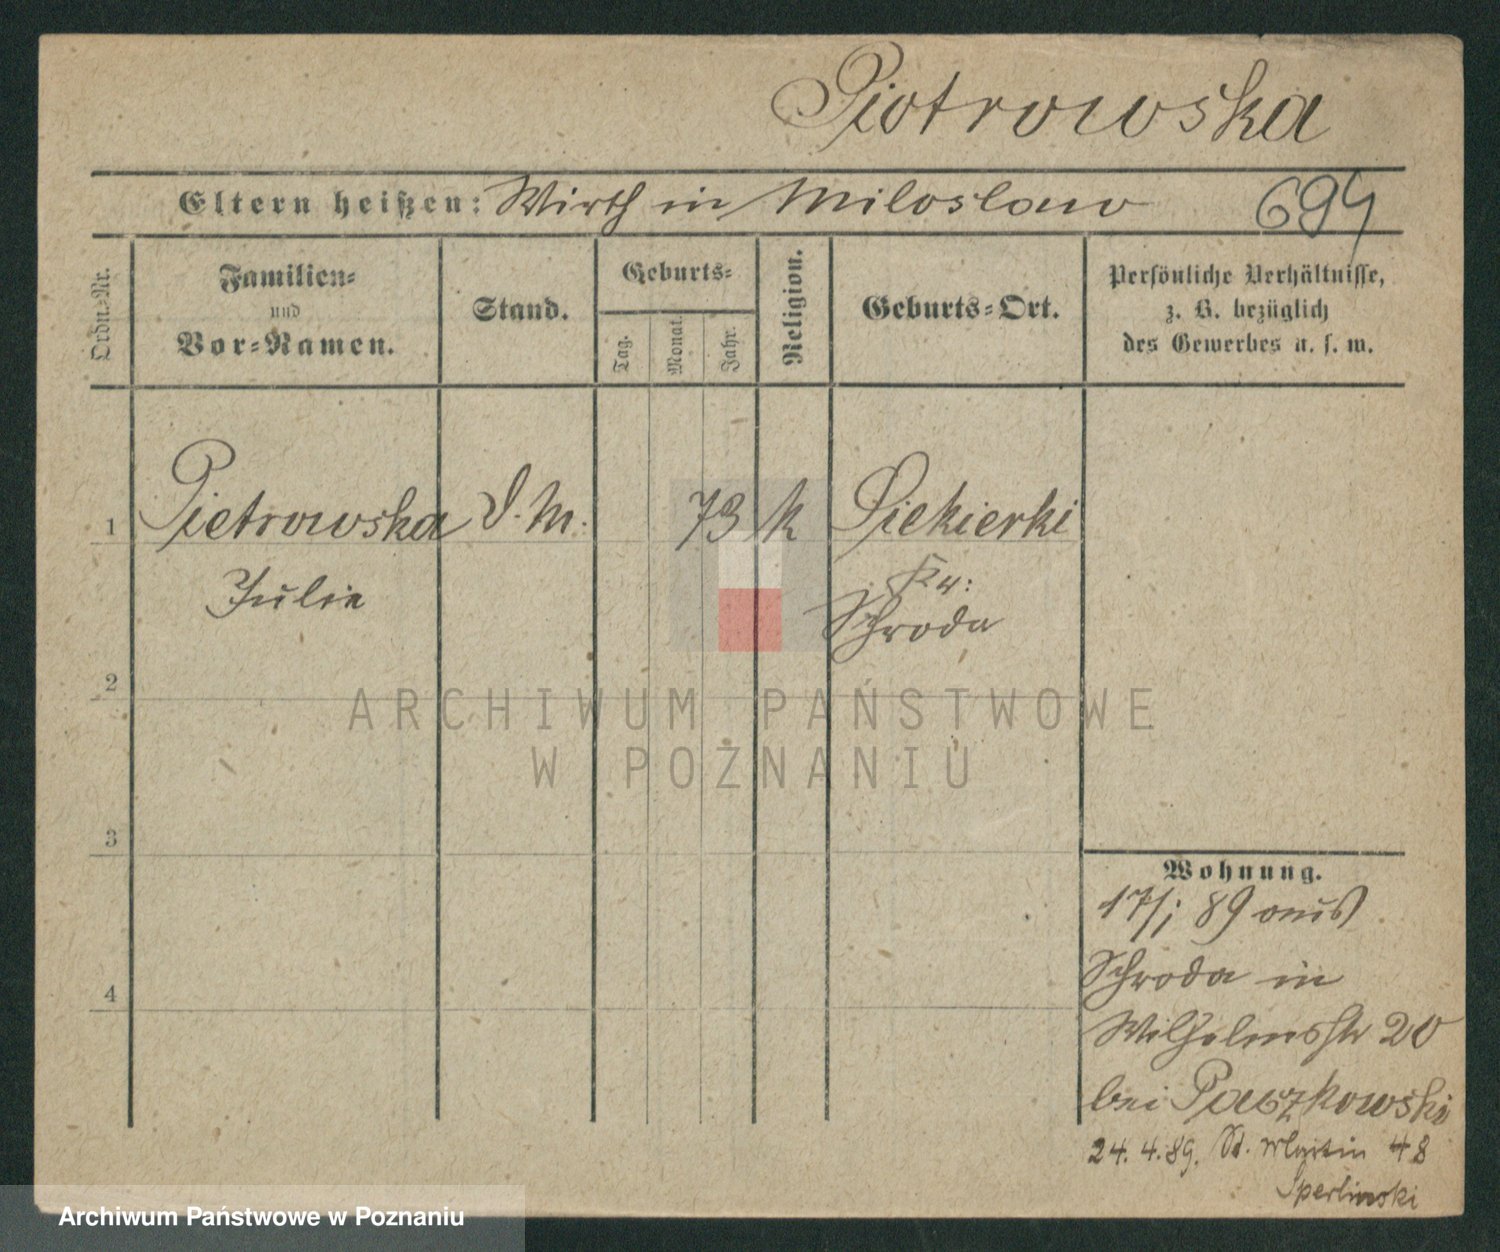 Piotrowska
Eltern heißen: Wirth in Miloslaw 694
Ordn.-Nr.
Familien-
und
Vor-Namen.
Stand.
Geburts-
Tag.
Monat.
Jahr.
Religion.
Geburts-Ort.
Persönliche Verhältnisse,
z. B. bezüglich
des Gewerbes u. s. w.
1 Pietrowska D.M. 73 k Siekierki
Julie Kr:
Schroda
2
3
4
ARCHIWUM PAŃSTWOWE
W POZNANIU
Wohnung.
17/1 89 aus
Schroda in
Wilhelmstr 20
bei Paszkowski
24.4.89. St. Martin 48
Sperlinski
Archiwum Państwowe w Poznaniu